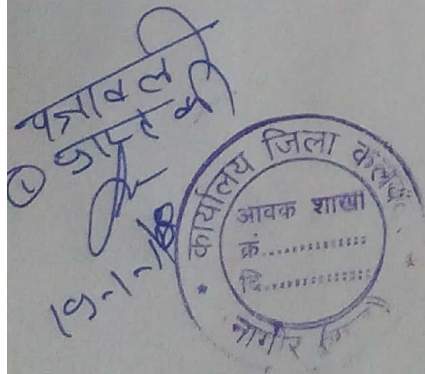 पत्रावली
①
19-1-18
कार्यालय जिला कलेक्टर
आवक शाखा
क्रं..............
दि..............
नागौर